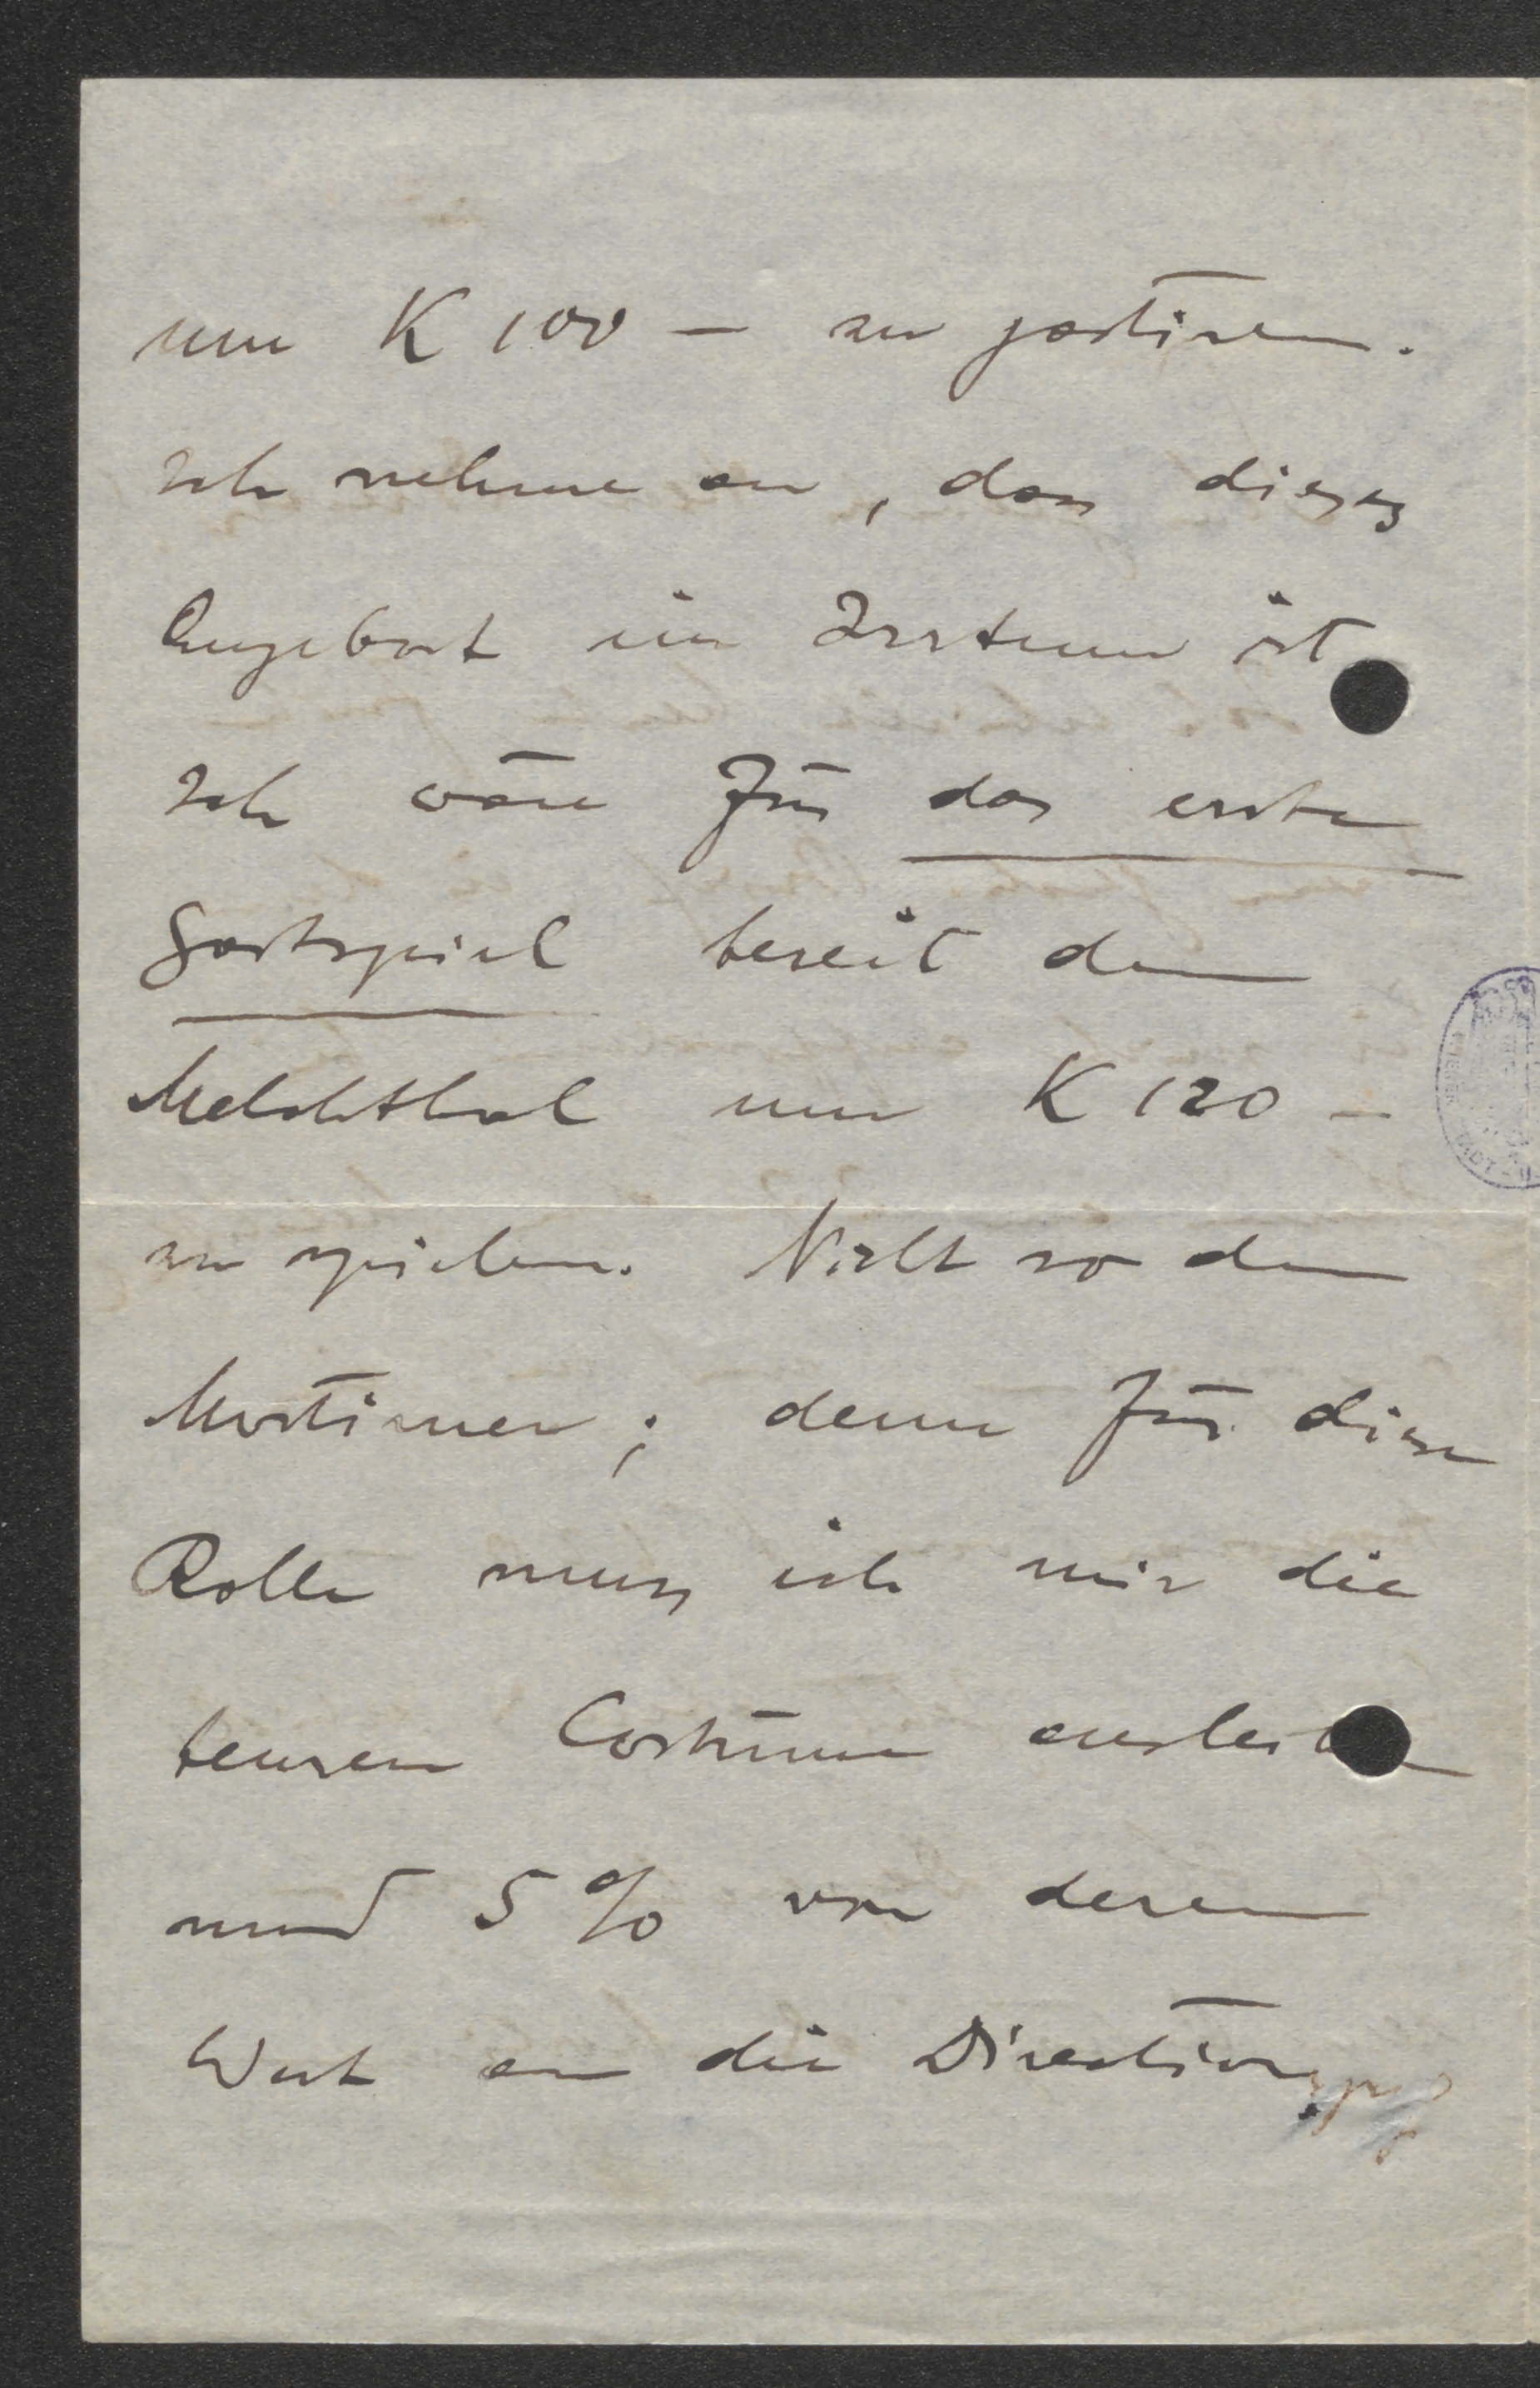 um K 100 – zu gastiren.
Ich nehme an, dass dieses
Angebot ein Irrtum ist
Ich wäre für das erste
Gastspiel bereit den
Melchthal um K 120 –
zu spielen. Nicht so den
Mortimer; denn für diese
Rolle muss ich mir die
teuren Costüme ausleihen
und 5% von deren
Wert an die Direction